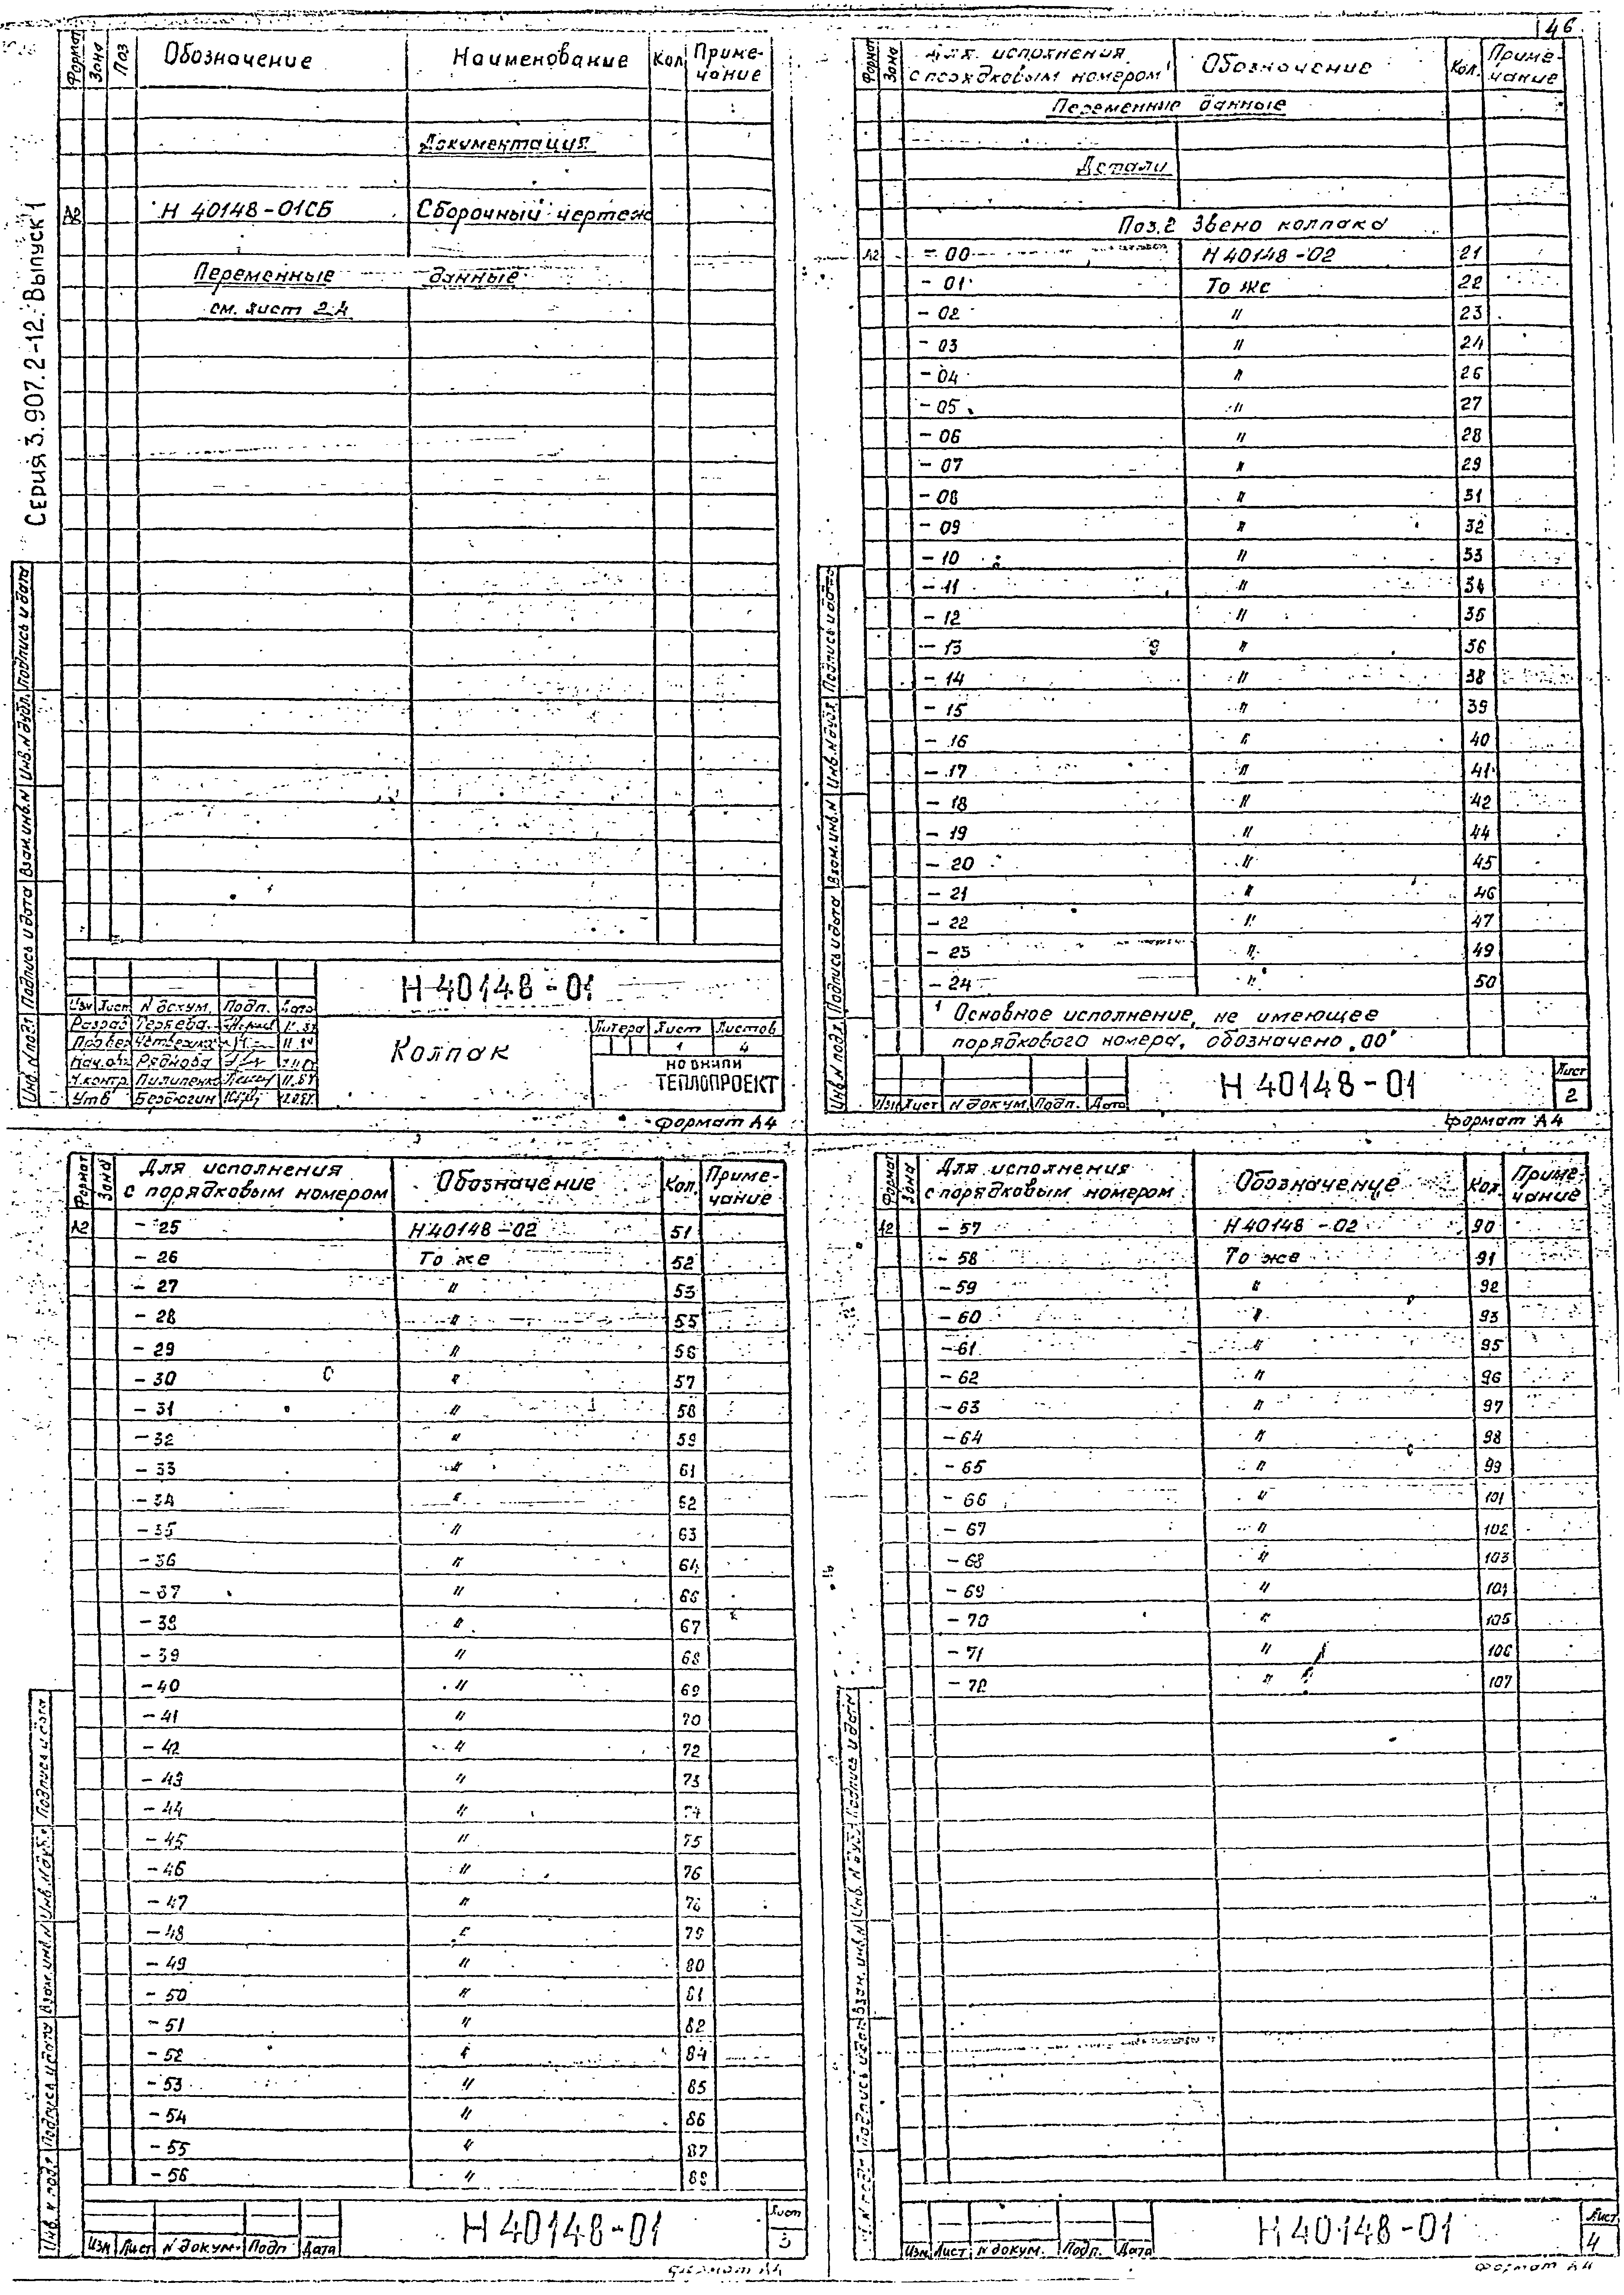 46
Серия 3.907.2-12. Выпуск 1
Формат Зона Поз Обозначение Наименование Кол Приме-
чание
Документация
Н 40148-01СБ Сборочный чертеж
Переменные данные
см. лист 2-4
Инв. N подл Подпись и дата Взам. инв. N Инв. N дубл. Подпись и дата
Н 40148-01
Изм Лист N докум. Подп. Дата
Разраб
Колпак
Литера Лист Листов
1 4
Нач. отд. Ряднова
Н. контр Пилипенко
Утв
НОВНИПИ
ТЕПЛОПРОЕКТ
Формат А4
Формат Зона Для исполнения
с порядковым номером¹ Обозначение Кол. Приме-
чание
Переменные данные
Детали
Поз. 2 Звено колпака
А2 - 00 Н 40148-02 21
- 01 То же 22
- 02 " 23
- 03 " 24
- 04 " 26
- 05 " 27
- 06 " 28
- 07 " 29
- 08 " 31
- 09 " 32
- 10 " 33
- 11 " 34
- 12 " 35
- 13 " 36
- 14 " 38
- 15 " 39
- 16 " 40
- 17 " 41
- 18 " 42
- 19 " 44
- 20 " 45
- 21 " 46
- 22 " 47
- 23 " 49
- 24 " 50
¹ Основное исполнение, не имеющее
порядкового номера, обозначено „00"
Инв. N подл. Подпись и дата Взам. инв. N Инв. N дубл Подпись и дата
Изм Лист N докум. Подп. Дата
Н 40148-01
Лист
2
Формат А4
Формат Зона Для исполнения
с порядковым номером Обозначение Кол. Приме-
чание
А2 - 25 Н 40148-02 51
- 26 То же 52
- 27 " 53
- 28 " 55
- 29 " 56
- 30 " 57
- 31 " 58
- 32 " 59
- 33 " 61
- 34 " 62
- 35 " 63
- 36 " 64
- 37 " 66
- 38 " 67
- 39 " 68
- 40 " 69
- 41 " 70
- 42 " 72
- 43 " 73
- 44 " 74
- 45 " 75
- 46 " 76
- 47 " 78
- 48 " 79
- 49 " 80
- 50 " 81
- 51 " 82
- 52 " 84
- 53 " 85
- 54 " 86
- 55 " 87
- 56 " 88
Инв. N подл Подпись и дата Взам. инв. N Инв. N дубл Подпись и дата
Изм Лист N докум. Подп Дата
Н 40148-01
Лист
3
Формат А4
Формат Зона Для исполнения
с порядковым номером Обозначение Кол. Приме-
чание
А2 - 57 Н 40148-02 90
- 58 То же 91
- 59 " 92
- 60 " 93
- 61 " 95
- 62 " 96
- 63 " 97
- 64 " 98
- 65 " 99
- 66 " 101
- 67 " 102
- 68 " 103
- 69 " 104
- 70 " 105
- 71 " 106
- 72 " 107
Подпись и дата Взам. инв. N Инв. N дубл Подпись и дата
Изм Лист N докум. Подп. Дата
Н 40148-01
Лист
4
Формат А4